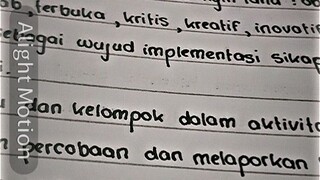 ab, terbuka, kritis, kreatif, inovatif
sebagai wujud implementasi sikap
i.
dan kelompok dalam aktivita
percobaan dan melaporkan
Alight Motion